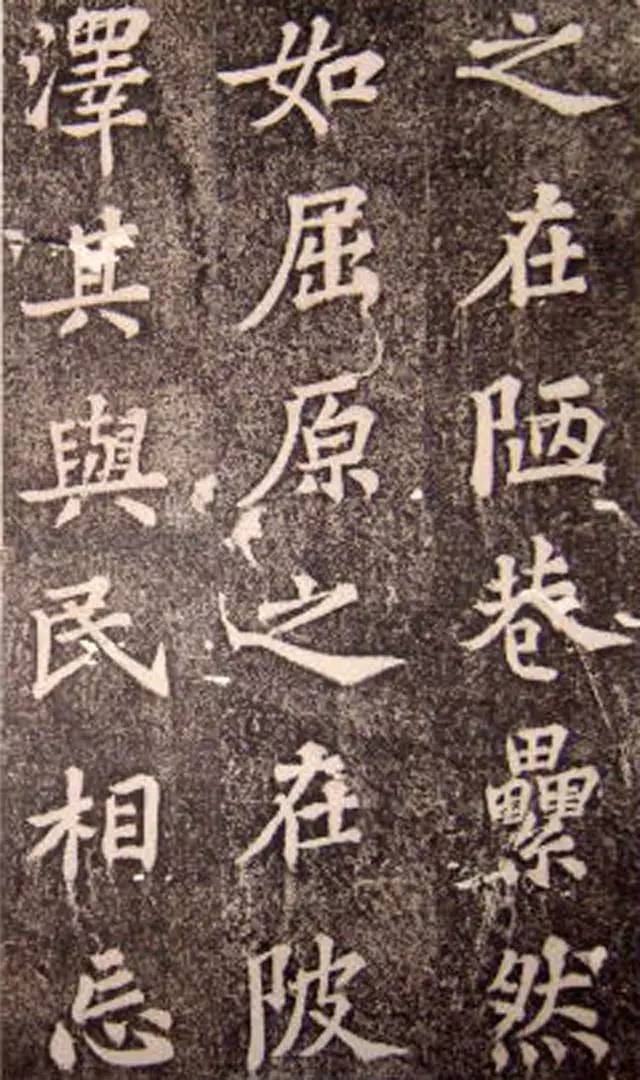 之在陋巷纍然
如屈原之在陂
澤其與民相忘